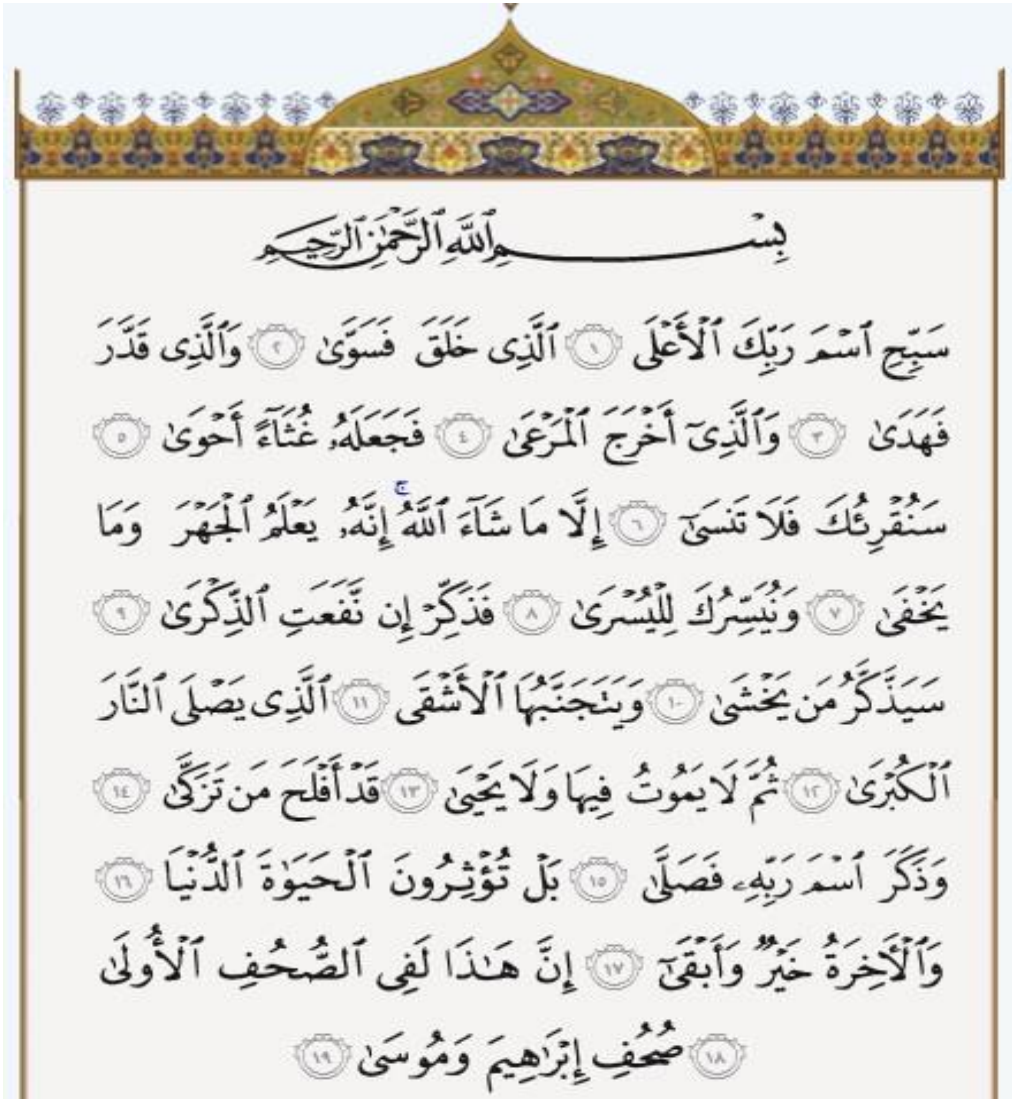 بِسْمِ ٱللَّهِ ٱلرَّحْمَٰنِ ٱلرَّحِيمِ
سَبِّحِ ٱسْمَ رَبِّكَ ٱلْأَعْلَى ١ ٱلَّذِى خَلَقَ فَسَوَّىٰ ٢ وَٱلَّذِى قَدَّرَ
فَهَدَىٰ ٣ وَٱلَّذِىٓ أَخْرَجَ ٱلْمَرْعَىٰ ٤ فَجَعَلَهُۥ غُثَآءً أَحْوَىٰ ٥
سَنُقْرِئُكَ فَلَا تَنسَىٰٓ ٦ إِلَّا مَا شَآءَ ٱللَّهُ ۚ إِنَّهُۥ يَعْلَمُ ٱلْجَهْرَ وَمَا
يَخْفَىٰ ٧ وَنُيَسِّرُكَ لِلْيُسْرَىٰ ٨ فَذَكِّرْ إِن نَّفَعَتِ ٱلذِّكْرَىٰ ٩
سَيَذَّكَّرُ مَن يَخْشَىٰ ١٠ وَيَتَجَنَّبُهَا ٱلْأَشْقَى ١١ ٱلَّذِى يَصْلَى ٱلنَّارَ
ٱلْكُبْرَىٰ ١٢ ثُمَّ لَا يَمُوتُ فِيهَا وَلَا يَحْيَىٰ ١٣ قَدْ أَفْلَحَ مَن تَزَكَّىٰ ١٤
وَذَكَرَ ٱسْمَ رَبِّهِۦ فَصَلَّىٰ ١٥ بَلْ تُؤْثِرُونَ ٱلْحَيَوٰةَ ٱلدُّنْيَا ١٦
وَٱلْأَخِرَةُ خَيْرٌ وَأَبْقَىٰٓ ١٧ إِنَّ هَٰذَا لَفِى ٱلصُّحُفِ ٱلْأُولَىٰ
١٨ صُحُفِ إِبْرَٰهِيمَ وَمُوسَىٰ ١٩